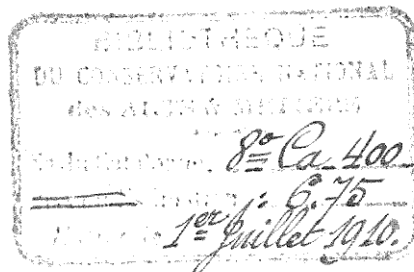 BIBLIOTHÈQUE
DU CONSERVATOIRE NATIONAL
des ARTS & MÉTIERS
8º Ca 400
: 6.75
1er Juillet 1910.